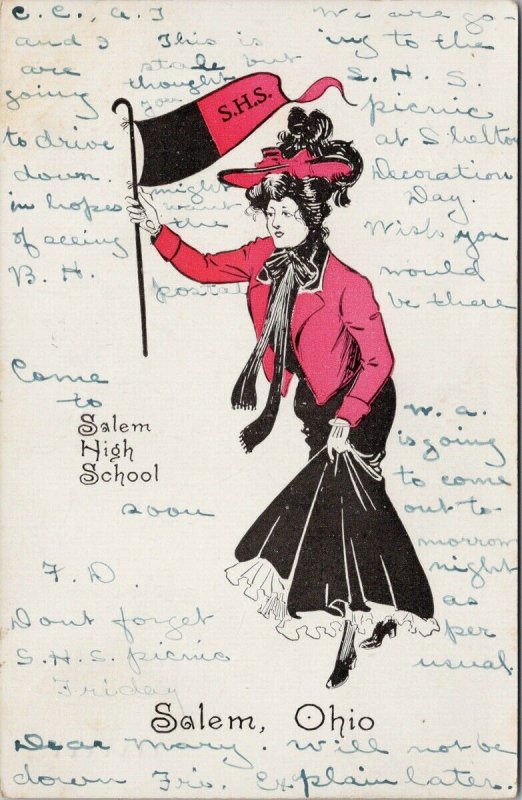 C. C., A. J
and I
are
going
to drive
down.
in hopes
of seeing
B. H.
This is
stale but
thought
you
might
want
the
postal
We are go-
ing to the
S. H. S.
picnic
at Shelton
Decoration
Day.
Wish you
would
be there
S.H.S.
Come
to
Salem
High
School
soon
W. A.
is going
to come
out to-
morrow
night
as
per
usual
F. D.
Dont forget
S. H. S. picnic
Friday
Salem, Ohio
Dear Mary. Will not be
down Fri. Explain later.